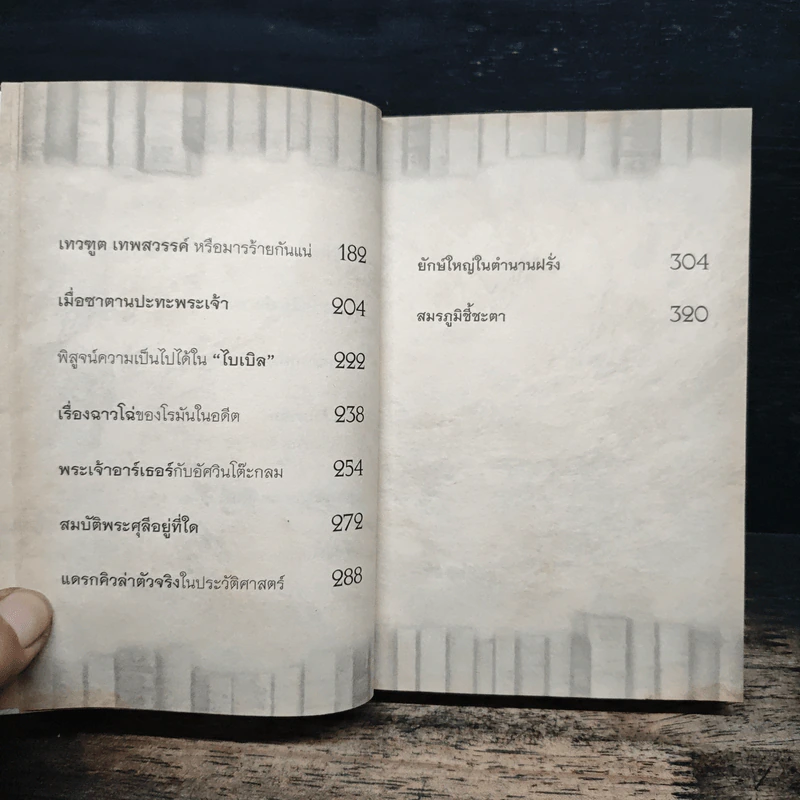 เทวฑูต เทพสวรรค์ หรือมารร้ายกันแน่ 182
เมื่อซาตานปะทะพระเจ้า 204
พิสูจน์ความเป็นไปได้ใน “ไบเบิล” 222
เรื่องฉาวโฉ่ของโรมันในอดีต 238
พระเจ้าอาร์เธอร์กับอัศวินโต๊ะกลม 254
สมบัติพระศุลีอยู่ที่ใด 272
แดรกคิวล่าตัวจริงในประวัติศาสตร์ 288
ยักษ์ใหญ่ในตำนานฝรั่ง 304
สมรภูมิชี้ชะตา 320